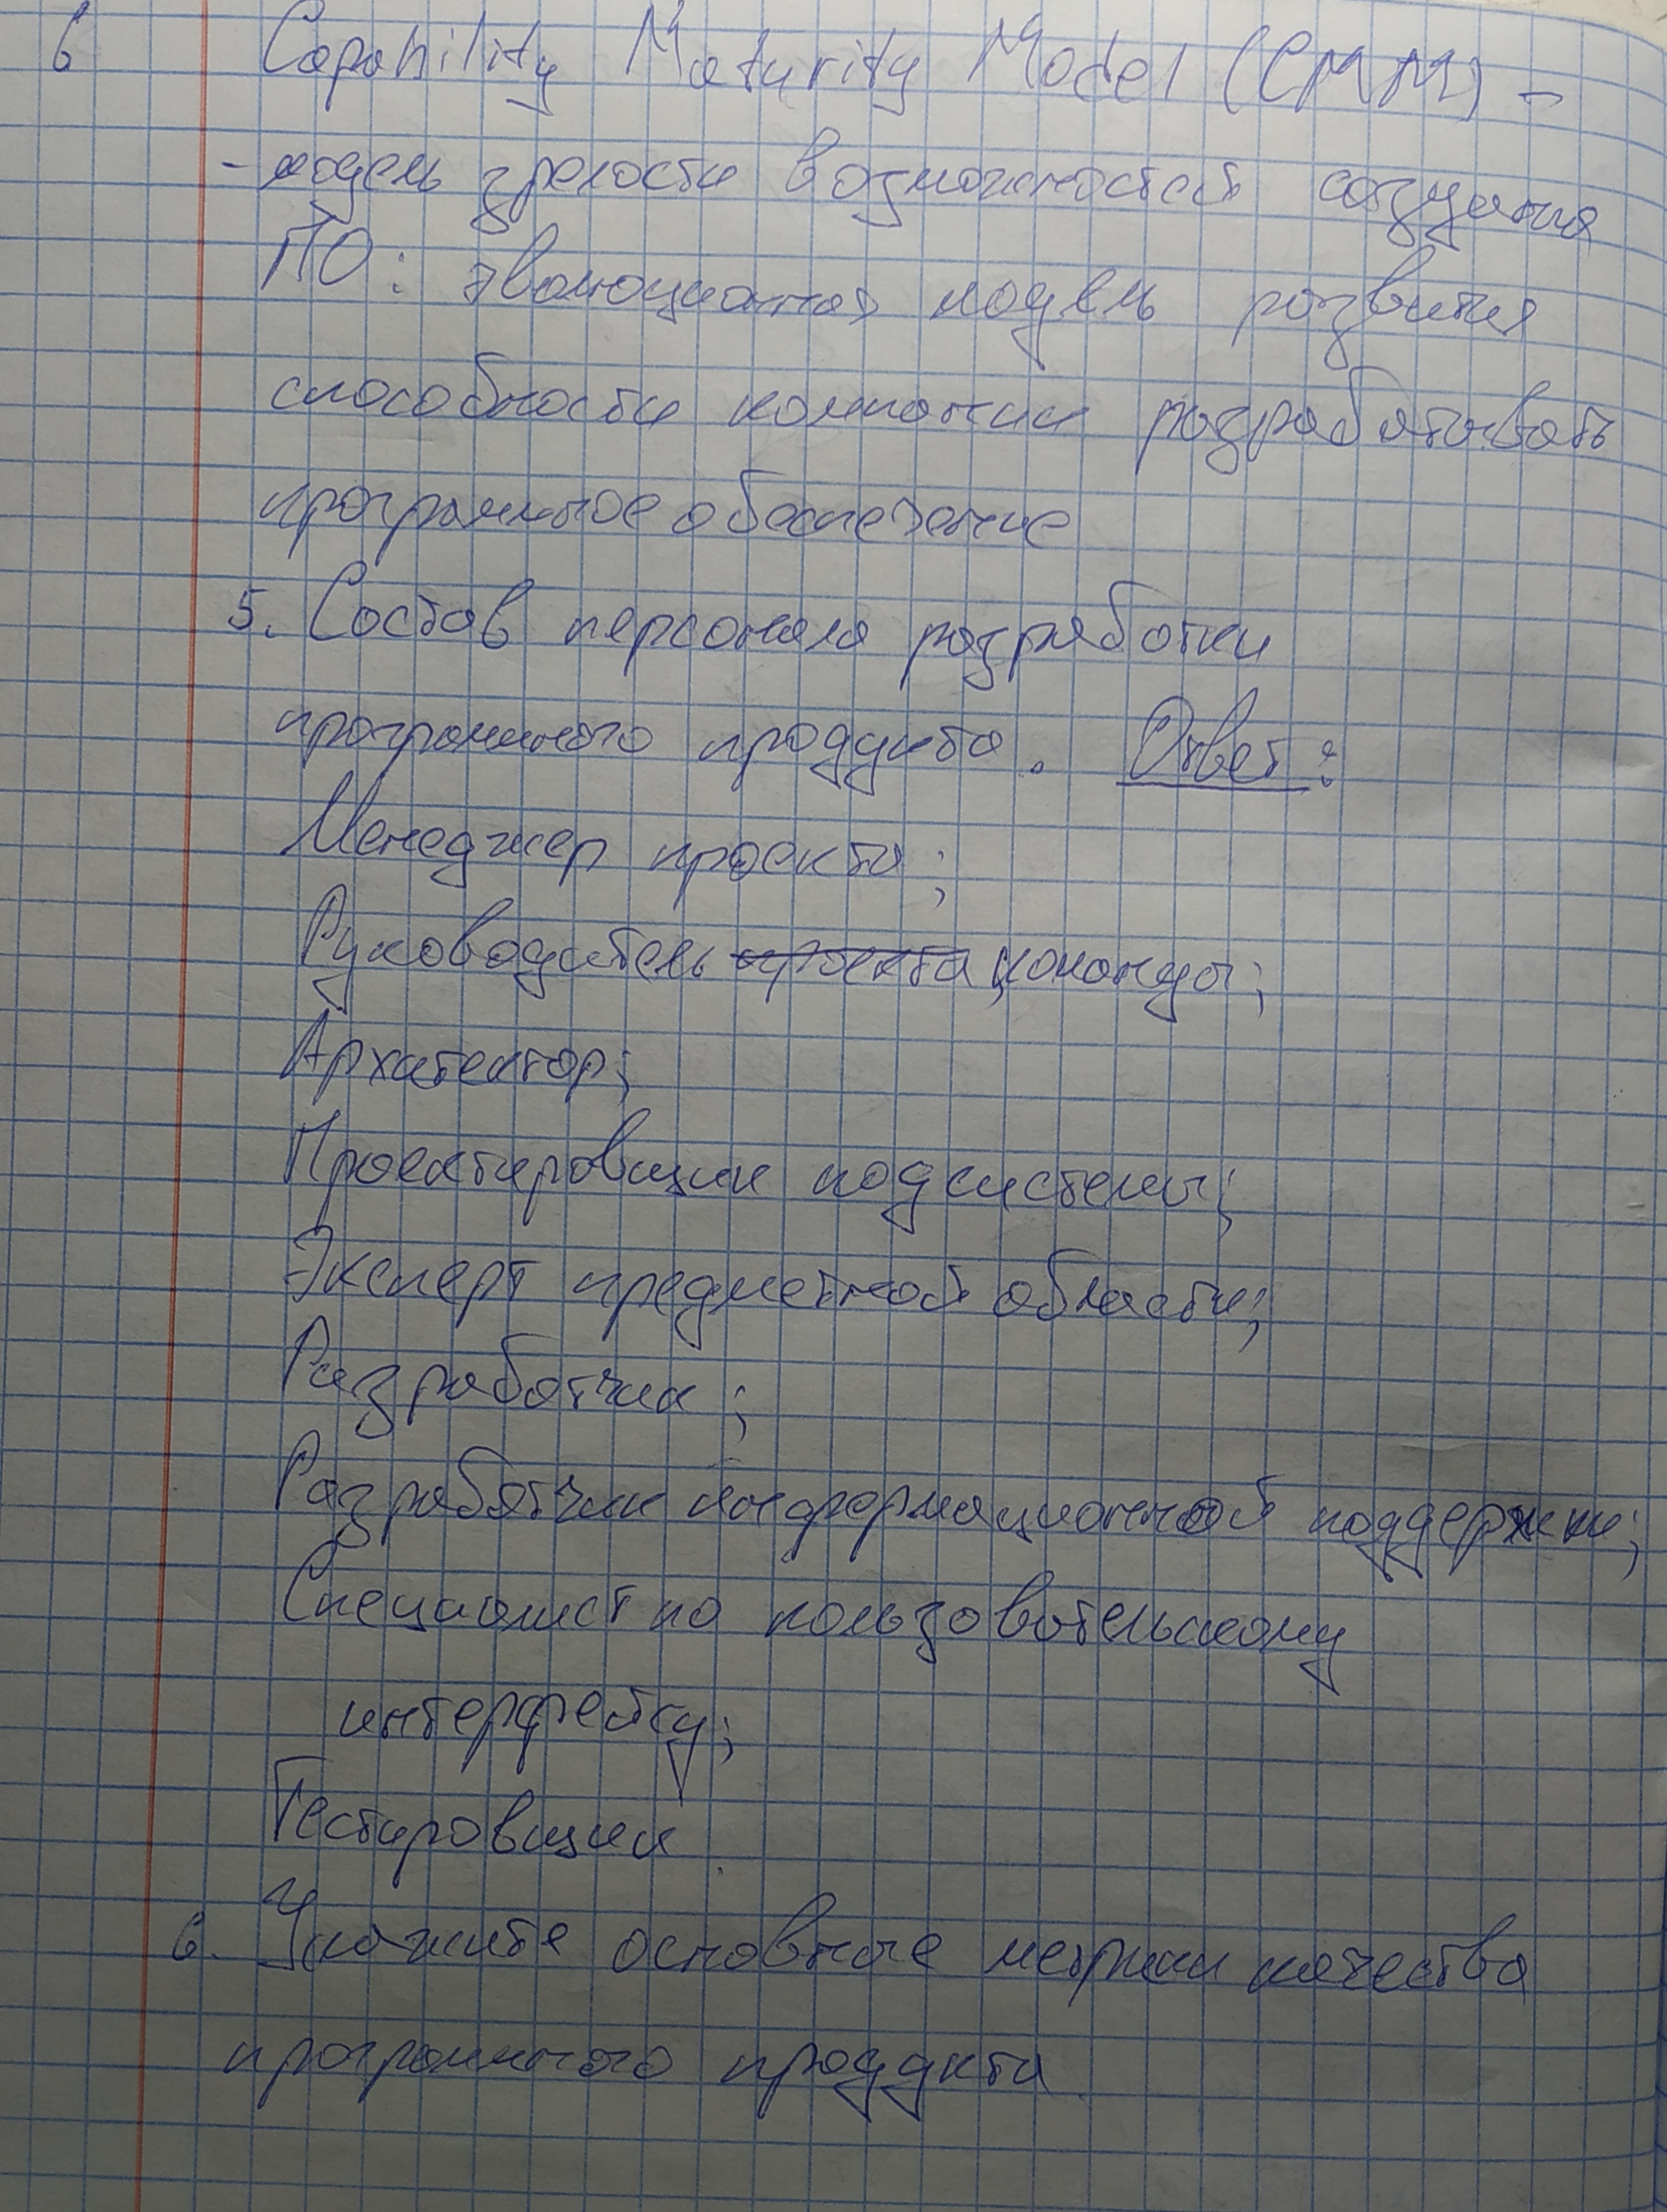 6 Capability Maturity Model (CMM) -
- модель зрелости возможностей создания
ПО: эволюционная модель развития
способности компании разрабатывать
программное обеспечение
5. Состав персонала разработки
программного продукта. Ответ:
Менеджер проекта;
Руководитель проекта команды;
Архитектор;
Проектировщик подсистемы;
Эксперт предметной области;
Разработчик;
Разработчик информационной поддержки;
Специалист по пользовательскому
интерфейсу;
Тестировщик
6. Укажите основные метрики качества
программного продукта